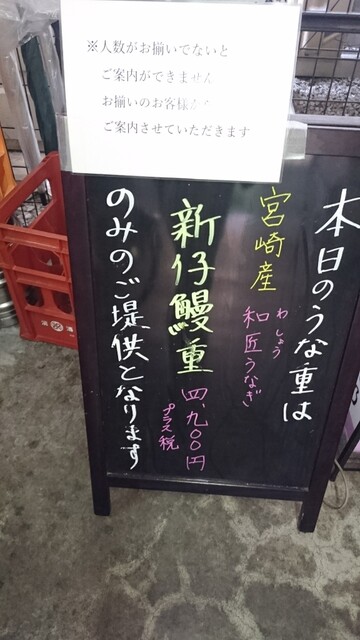 ※人数がお揃いでないと
ご案内ができません
お揃いのお客様から
ご案内させていただきます
本日のうな重は
宮崎産
わしょう
和匠うなぎ
新仔鰻重
四、九〇〇円
プラス税
のみのご提供となります